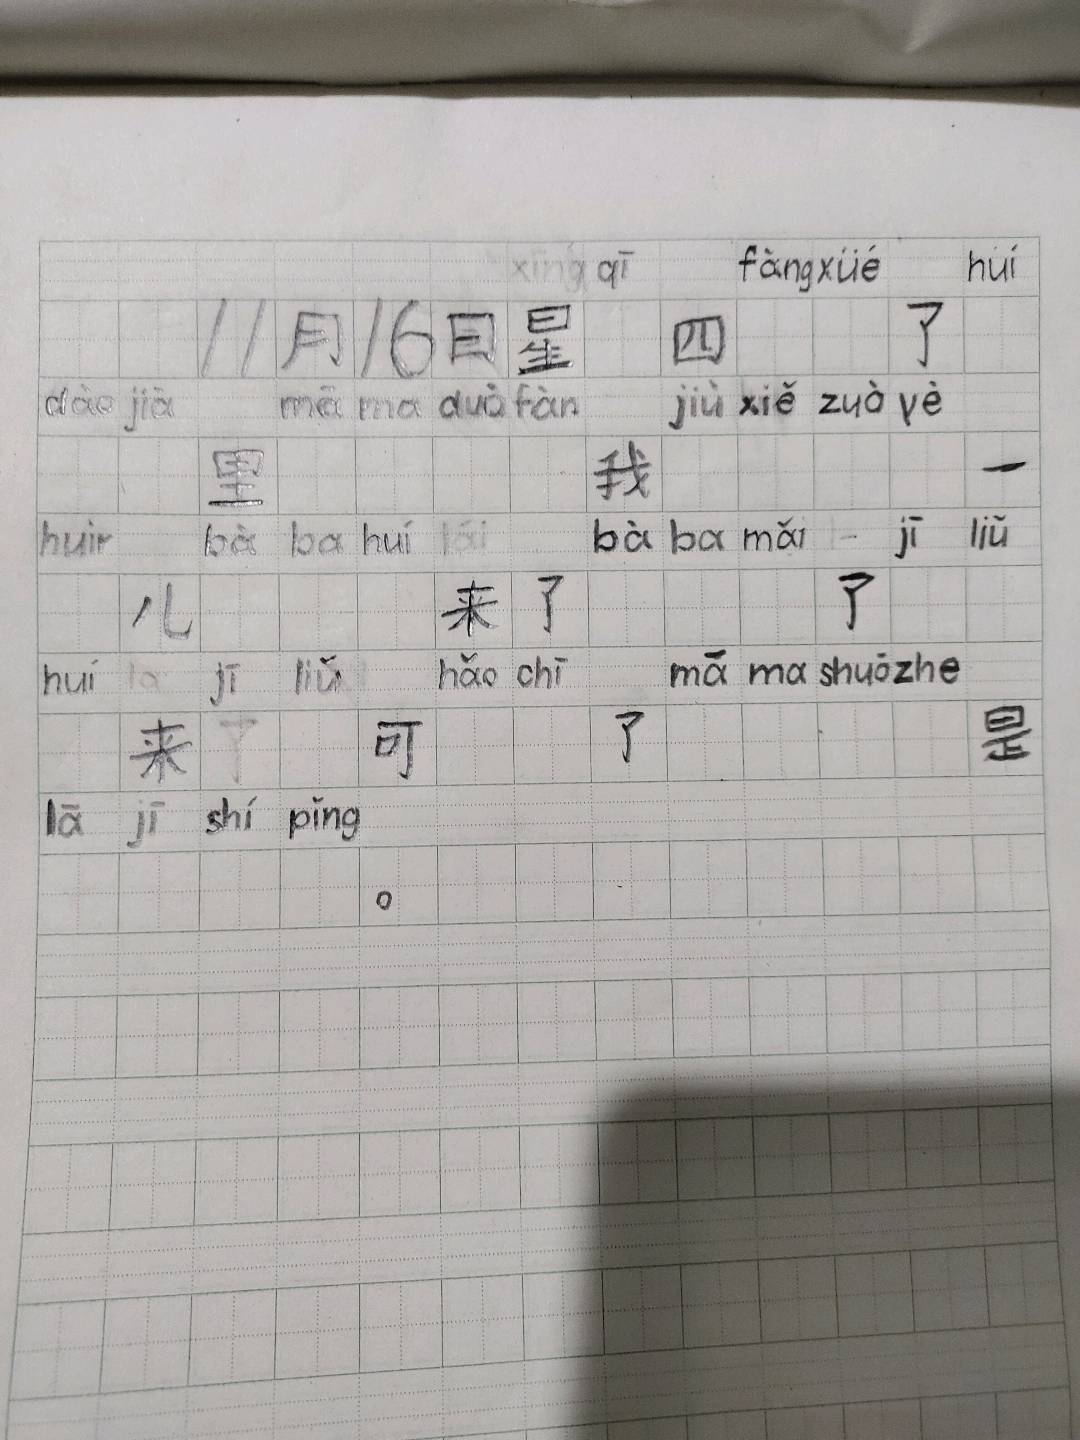 xīng qī fàngxüé húi
11月16日星四了
dào jià mā ma duò fàn jiù xiě zuò yè
里我一
huìr bà ba huí lái bà ba mǎi jī liǔ
儿来了了
huí jī liǔ hǎo chī mā ma shuōzhe
来了可了是
lā jī shí pǐng
。